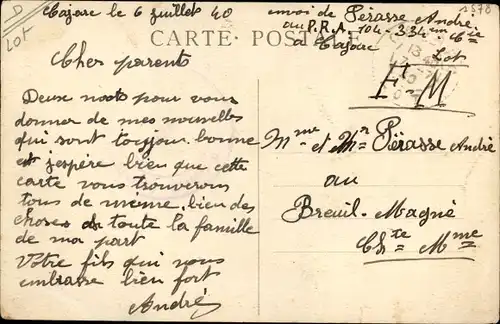 Cajarc le 6 juillet 40
envoi de Pérasse André
au P.R.A. 104-334em Cie
à Cajarc
Lot
1578
D
LOT
CARTE POSTALE
F-M
Cher parents
Deux mots pour vous
donner de mes nouvelles
qui sont toujour bonne
et j'espère bien que cette
carte vous trouverons
tous de meme, bien des
choses de toute la famille
de ma part
Votre fils qui vous
embrasse bien fort
André
Mme et Mr Pérasse André
au
Breuil-Magné
Chte Mme